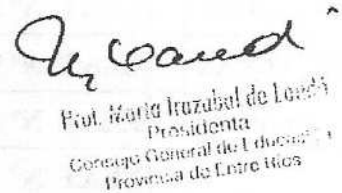 Prof. María Irazabal de Landó
Presidenta
Consejo General de Educación
Provincia de Entre Ríos